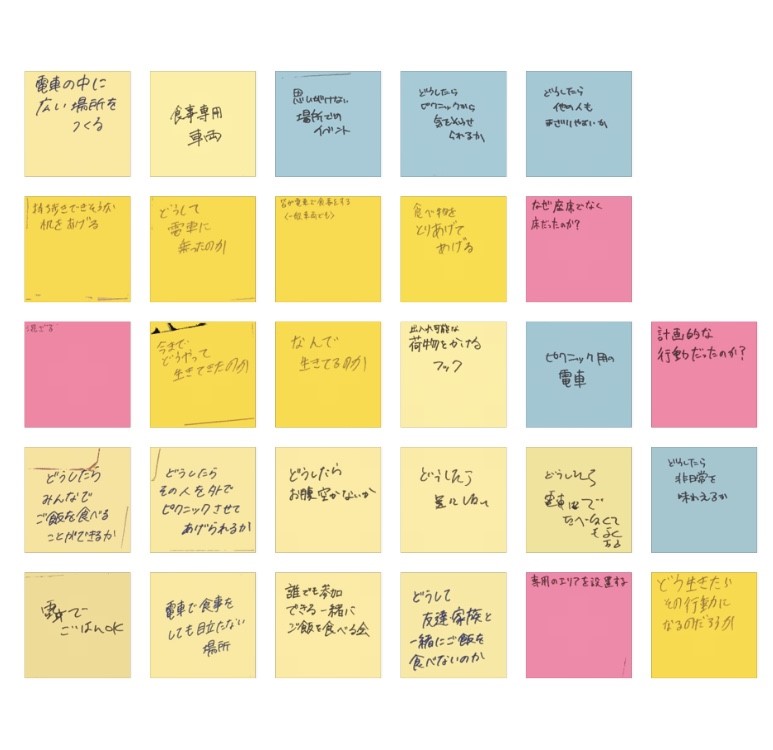 電車の中に
広い場所を
つくる
食事専用
車両
思いがけない
場所での
イベント
どうしたら
ピクニックから
気をそらせ
られるか
どうしたら
他の人も
まざりやすいか
持ち歩きできそうな
机をあげる
どうして
電車に
乗ったのか
皆が電車で食事にする
(一般車両でも)
食べ物を
とりあげて
あげる
なぜ座席でなく
床だったのか?
混ざる
今まで
どうやって
生きてきたのか
なんで
生きてるのか
出入れ可能な
荷物をかける
フック
ピクニック用の
電車
計画的な
行動だったのか?
どうしたら
みんなで
ご飯を食べる
ことができるか
どうしたら
その人を外で
ピクニックさせて
あげられるか
どうしたら
お腹空かないか
どうしたら
どうしたら
電車
たべなくて
もよく
なる
どうしたら
非日常を
味わえるか
電車で
ごはんOK
電車で食事を
しても目立たない
場所
誰でも参加
できる一緒に
ご飯を食べる会
どうして
友達家族と
一緒にご飯を
食べないのか
専用のエリアを設置する
どう生きたら
その行動に
なるのだろうか